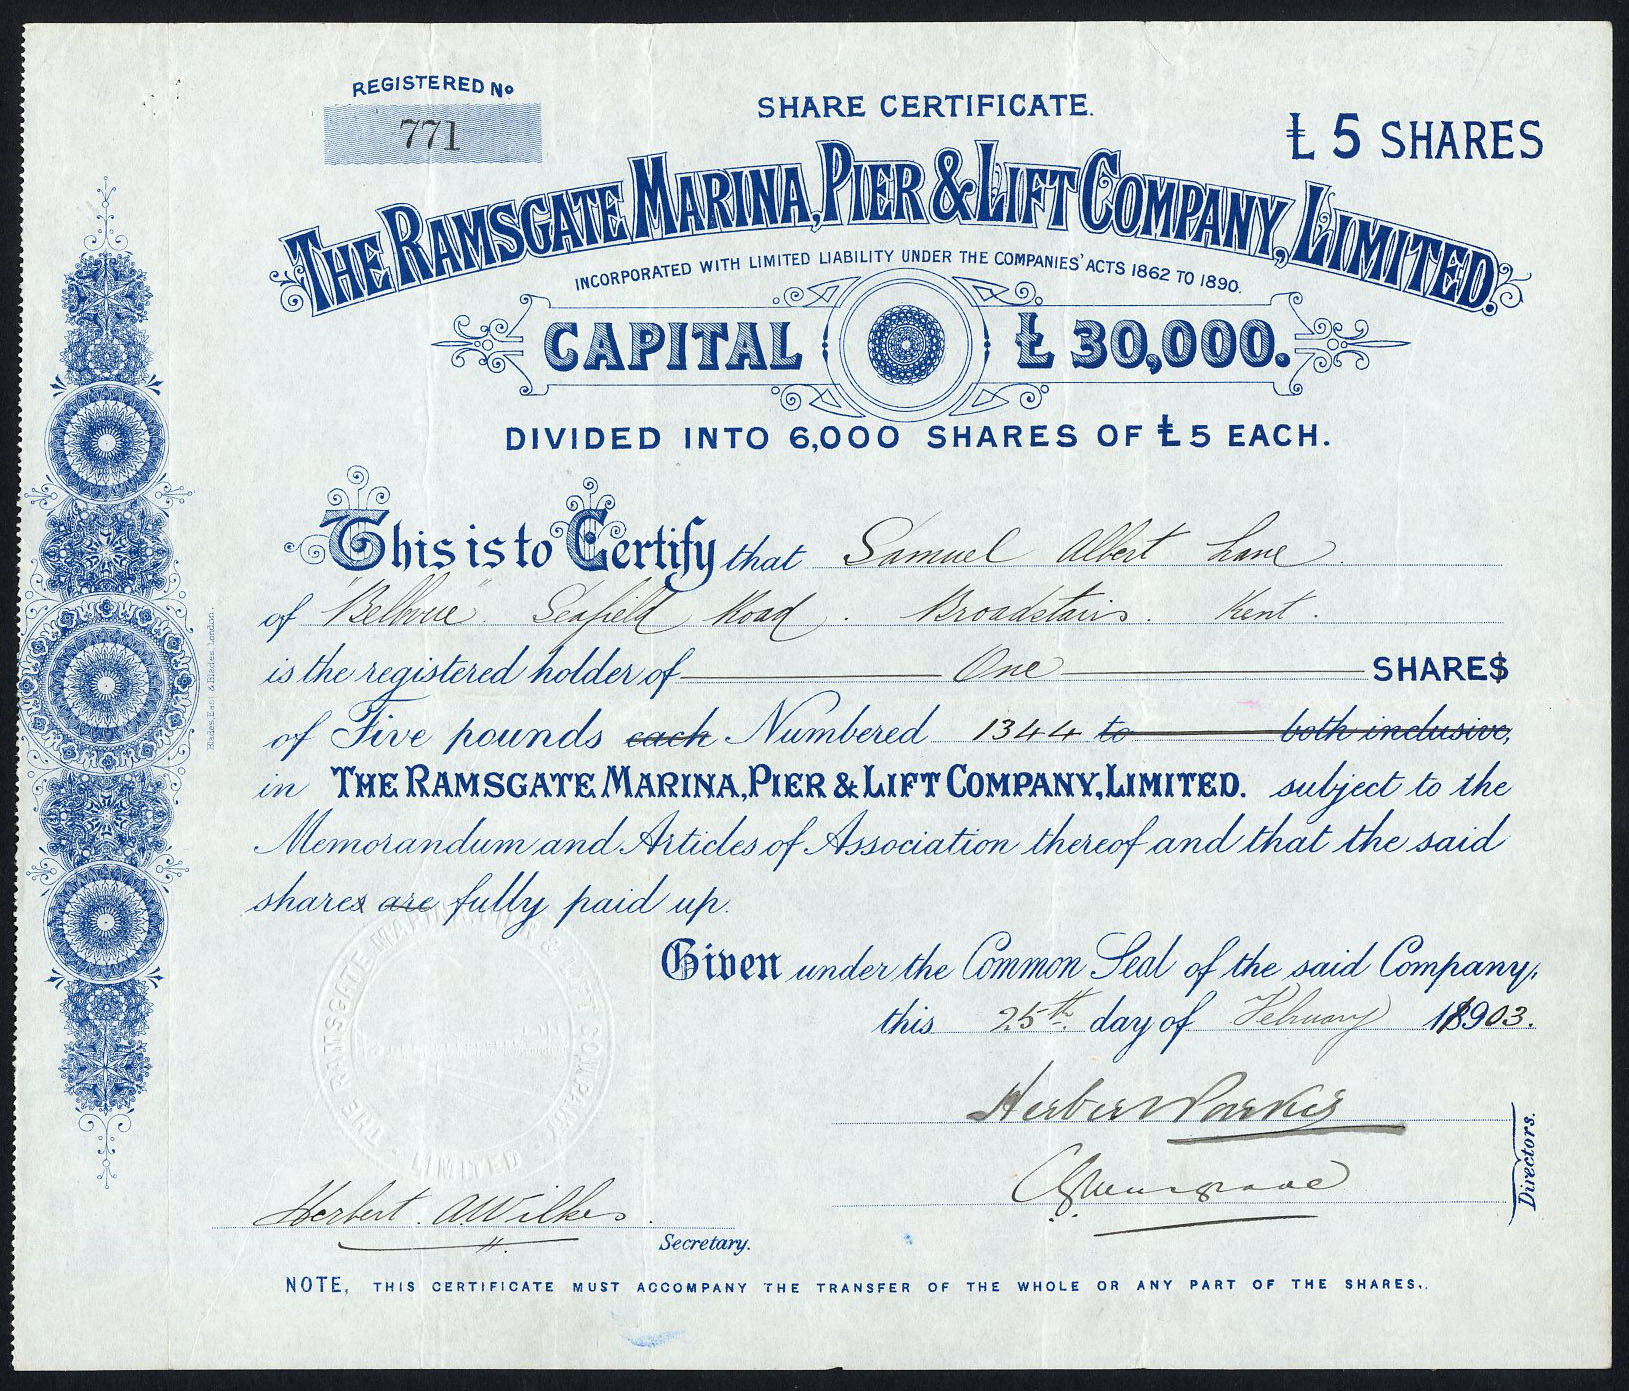 REGISTERED No
771
SHARE CERTIFICATE.
£ 5 SHARES
THE RAMSGATE MARINA, PIER & LIFT COMPANY, LIMITED.
INCORPORATED WITH LIMITED LIABILITY UNDER THE COMPANIES' ACTS 1862 TO 1890.
CAPITAL £ 30,000.
DIVIDED INTO 6,000 SHARES OF £5 EACH.
This is to Certify that Samuel Albert Lane
of "Bellvue" Seafield Road. Broadstairs. Kent.
is the registered holder of One SHARES
of Five pounds each Numbered 1344 to both inclusive,
in THE RAMSGATE MARINA, PIER & LIFT COMPANY, LIMITED. subject to the
Memorandum and Articles of Association thereof and that the said
shares are fully paid up.
Given under the Common Seal of the said Company,
this 25th day of February 1903.
THE RAMSGATE MARINA PIER & LIFT COMPANY
LIMITED
Herbert
Directors.
Herbert A Wilkes.
Secretary.
NOTE, THIS CERTIFICATE MUST ACCOMPANY THE TRANSFER OF THE WHOLE OR ANY PART OF THE SHARES.
Blades, East & Blades, London.